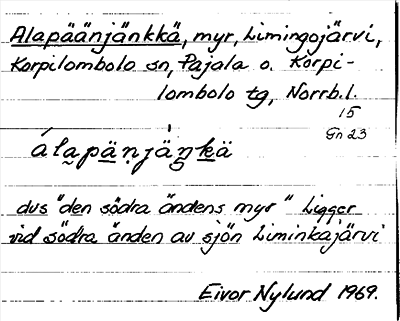 Alapäänjänkkä, myr, Limingojärvi,
Korpilombolo sn, Pajala o. Korpi-
lombolo tg, Norrb.l.
15
Gn 23
álapänjäŋkä
dvs "den södra ändens myr" Ligger
vid södra änden av sjön Liminkajärvi
Eivor Nylund 1969.